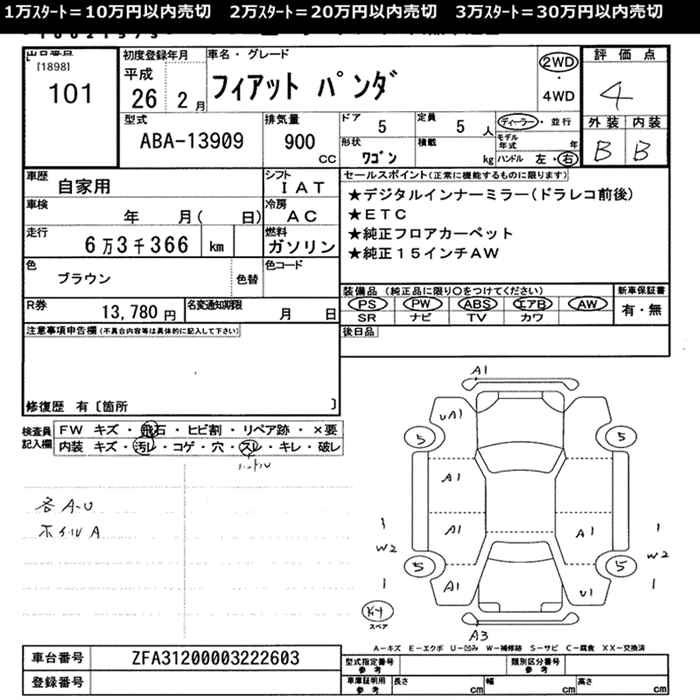 1万ｽﾀｰﾄ＝10万円以内売切　2万ｽﾀｰﾄ＝20万円以内売切　3万ｽﾀｰﾄ＝30万円以内売切
出品番号
[1898]
101
初度登録年月
平成
26 2 月
車名・グレード
フィアット パンダ
2WD
・
4WD
評価点
4
外装 内装
B B
型式
ABA-13909
排気量
900
CC
ドア
5
定員
5 人
形状
ワゴン
積載
kg
ディーラー・並行
モデル年式 年
ハンドル 左・右
車歴
自家用
シフト
IAT
車検
年 月( 日)
冷房
AC
走行
6万3千366 km
燃料
ガソリン
色
ブラウン
色替
色コード
R券
13,780 円
名変通知期限
月 日
セールスポイント(正常に機能するものに限ります)
★デジタルインナーミラー(ドラレコ前後)
★ETC
★純正フロアカーペット
★純正15インチAW
装備品 (純正品に限り○をつけてください)
PS PW ABS エアB AW
SR ナビ TV カワ
新車保証書
有・無
後日品
注意事項申告欄(不具合内容等は具体的に記入して下さい)
修復歴 有〔箇所 〕
検査員記入欄
FW キズ・飛石・ヒビ割・リペア跡・×要
内装 キズ・汚レ・コゲ・穴・スレ・キレ・破レ
ハンドル
各A-U
ホイルA
A1
UA1
5 5
A1
A1 A1
W2 W2
5 5
A1 U1
スペア
A3
A－キズ E－エクボ U－凹み W－補修跡 S－サビ C－腐食 XX－交換済
車台番号
ZFA31200003222603
登録番号
型式指定番号 参考
類別区分番号 参考
車庫証明用 参考
長さ cm
幅 cm
高さ cm